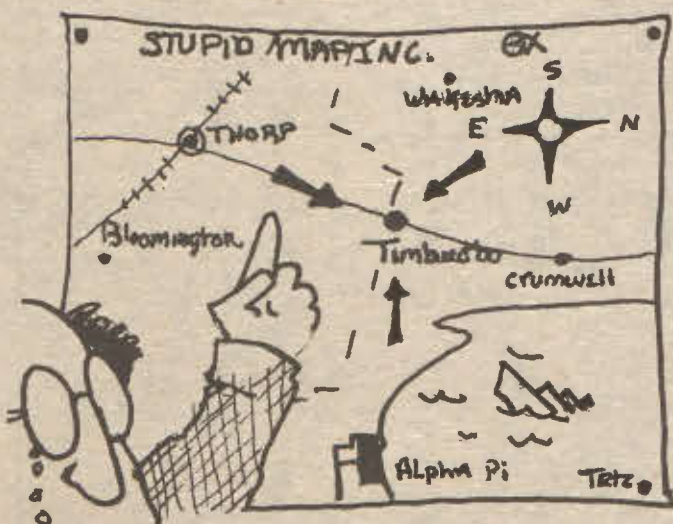 STUPID MAPING.
WAUKESHA
S
E
N
W
THORP
Bloomington
Timbuctoo
Crumwell
Alpha Pi